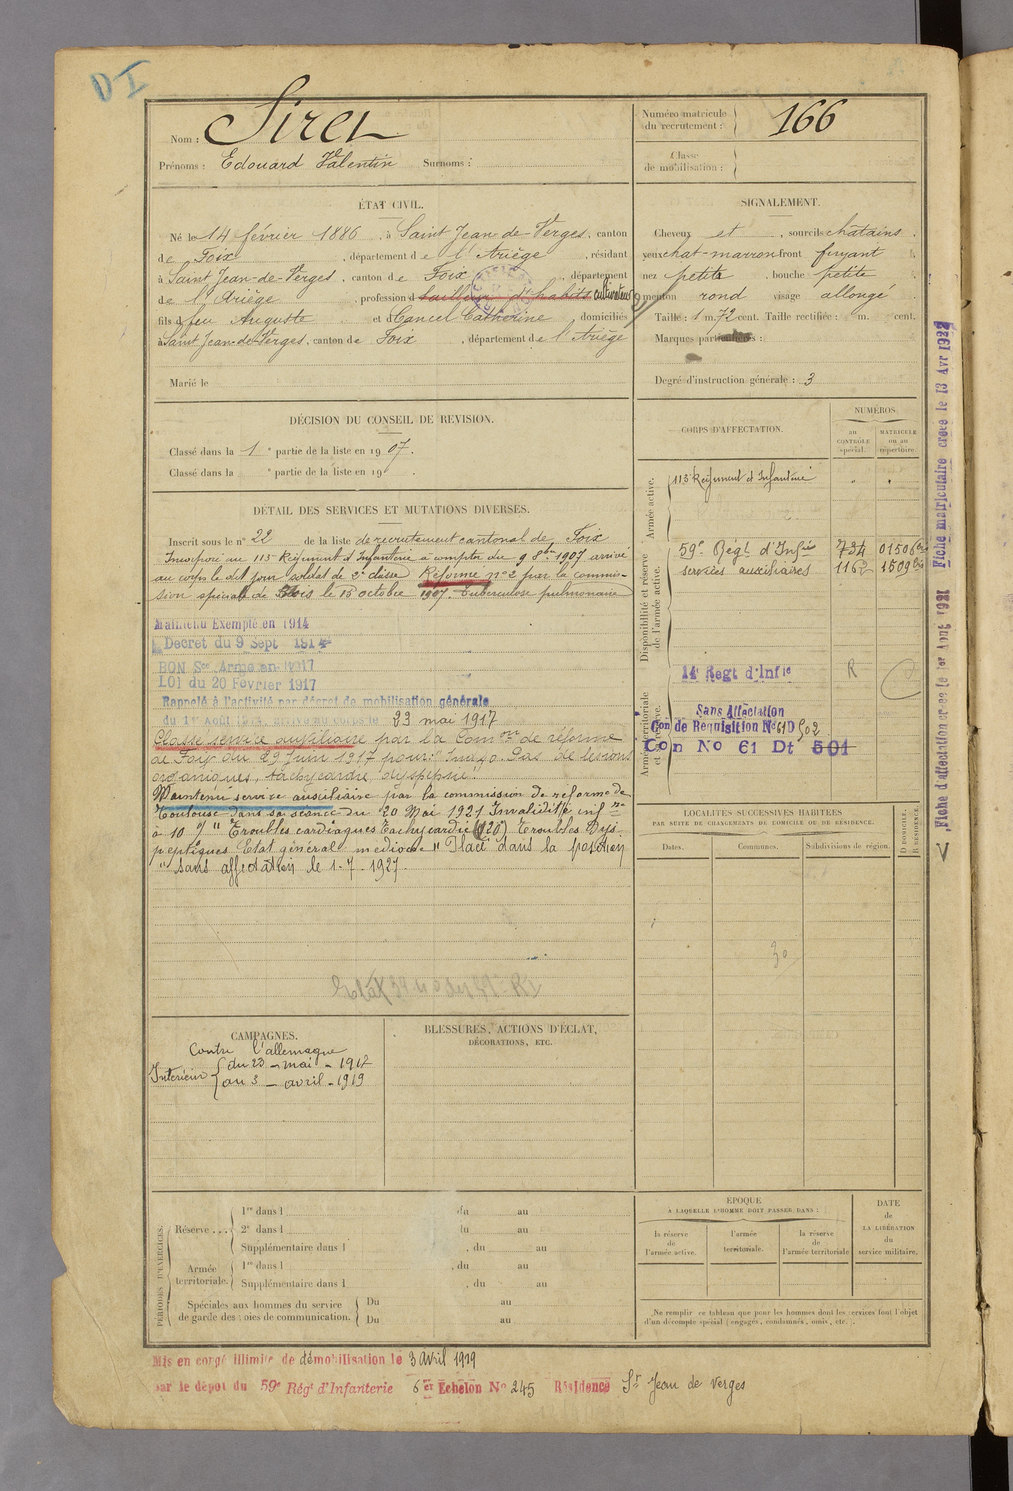 D I
Nom : Siret
Prénoms : Edouard Valentin Surnoms :
Numéro matricule
du recrutement : 166
Classe
de mobilisation :
ÉTAT CIVIL.
Né le 14 février 1886, à Saint Jean de Verges, canton
de Foix, département de l'Ariège, résidant
à Saint Jean-de-Verges, canton de Foix, département
de l'Ariège, profession d tailleur d'habits cultivateur
fils d feu Auguste et d Cancel Catherine, domiciliés
à Saint Jean-de-Verges, canton de Foix, département de l'Ariège
Marié le
SIGNALEMENT.
Cheveux et, sourcils chatains.
yeux chat-marron front fuyant
nez petit, bouche petite
menton rond visage allongé
Taille : 1 m. 72 cent. Taille rectifiée : m. cent.
Marques particulières :
Degré d'instruction générale : 3
DÉCISION DU CONSEIL DE REVISION.
Classé dans la 1e partie de la liste en 1907.
Classé dans la e partie de la liste en 19
DÉTAIL DES SERVICES ET MUTATIONS DIVERSES.
Inscrit sous le n° 22 de la liste de recrutement cantonal de Foix
Incorporé au 113e Régiment d'Infanterie à compter du 9 8bre 1907 arrivé
au corps le dit jour soldat de 2e classe Réformé n°2 par la commis-
sion spéciale de Blois le 15 octobre 1907. Tuberculose pulmonaire
Maintenu Exempté en 1914
Décret du 9 Sept 1914
BON Sce Armé en 1917
LOI du 20 Février 1917
Rappelé à l'activité par décret de mobilisation générale
du 1er Août 1914, arrivé au corps le 23 mai 1917
Classé service auxiliaire par la Comon de réforme
de Foix du 29 Juin 1917 pour: Pas de lésions
organiques, tachycardie dyspepsie".
Maintenu service auxiliaire par la commission de réforme de
Toulouse dans sa séance du 20 Mai 1921 Invalidité infre
à 10 % " Troubles cardiaques Tachycardie (120) Troubles Dys-
peptiques Etat général médiocre " Placé dans la position
"sans affectation le 1-7-1927.
CORPS D'AFFECTATION.
NUMÉROS
au
CONTRÔLE
spécial.
MATRICULE
ou au
répertoire.
Armée active.
113e Régiment d'Infanterie
Disponibilité et réserve
de l'armée active.
59e Régt d'Infie 734 01506 bis
services auxiliaires 1162 1509 bis
Armée territoriale
et réserve.
14e Regt d'Infie R
Sans Affectation
Con de Requisition No 61 D 502
Con No 61 Dt 501
LOCALITÉS SUCCESSIVES HABITÉES
PAR SUITE DE CHANGEMENTS DE DOMICILE OU DE RÉSIDENCE.
Dates. Communes. Subdivisions de région.
D DOMICILE.
R RÉSIDENCE.
30
CAMPAGNES.
Contre l'allemagne
Intérieur du 23 - mai - 1917
au 3 - avril - 1919
BLESSURES, ACTIONS D'ÉCLAT,
DÉCORATIONS, ETC.
PÉRIODES D'EXERCICES.
Réserve ...
1re dans l du au
2e dans l du au
Supplémentaire dans l, du au
Armée
territoriale.
1re dans l, du au
Supplémentaire dans l, du au
Spéciales aux hommes du service
de garde des voies de communication.
Du au
Du au
ÉPOQUE
A LAQUELLE L'HOMME DOIT PASSER DANS :
la réserve
de
l'armée active.
l'armée
territoriale.
la réserve
de
l'armée territoriale
DATE
de
LA LIBÉRATION
du
service militaire.
Ne remplir ce tableau que pour les hommes dont les services font l'objet
d'un décompte spécial (engagés, condamnés, omis, etc.).
Mis en congé illimité de démobilisation le 3 Avril 1919
par le dépôt du 59e Régt d'Infanterie 6er Echelon No 245 Résidence St Jean de Verges
Fiche d'affectation créée le 1er Aout 1921 Fiche matriculaire créée le 13 Avr 1922